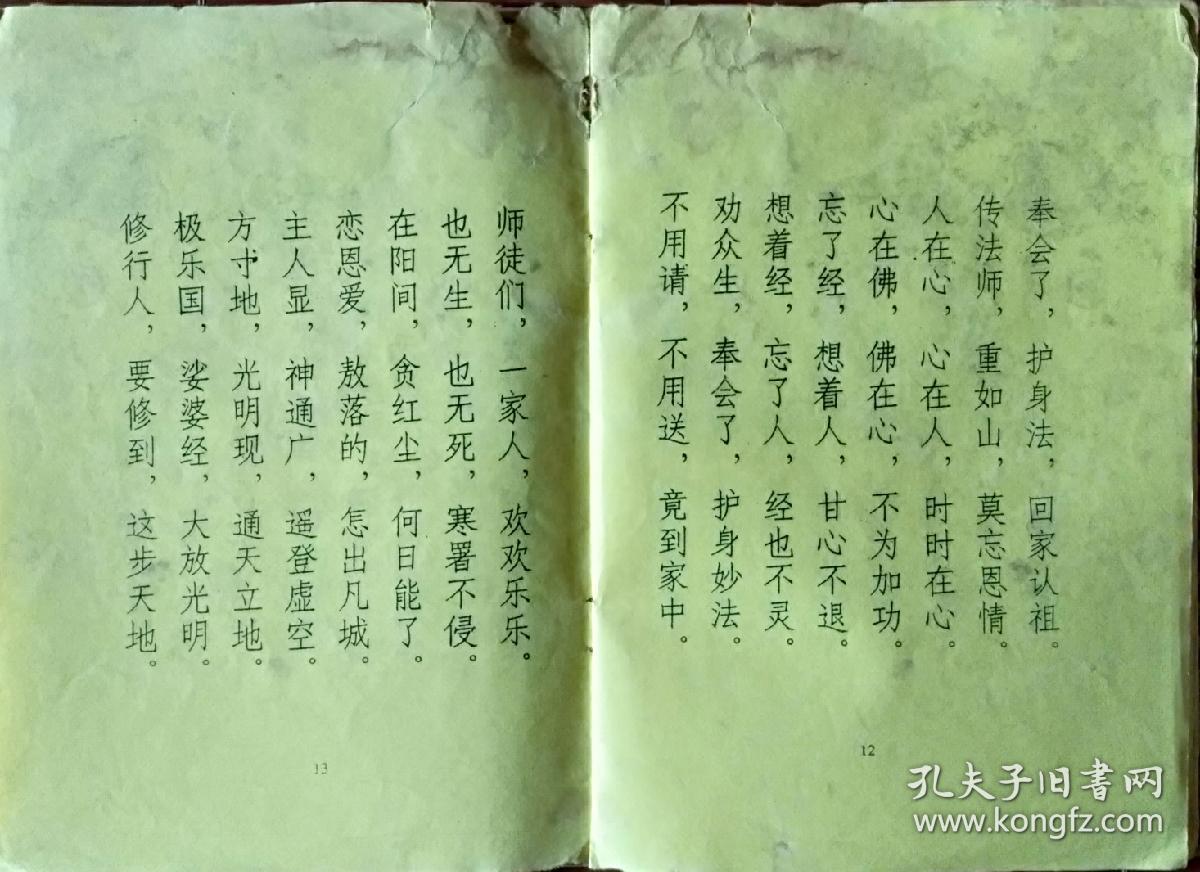 奉会了，护身法，回家认祖。
传法师，重如山，莫忘恩情。
人在心，心在人，时时在心。
心在佛，佛在心，不为加功。
忘了经，想着人，甘心不退。
想着经，忘了人，经也不灵。
劝众生，奉会了，护身妙法。
不用请，不用送，竟到家中。
12
师徒们，一家人，欢欢乐乐。
也无生，也无死，寒署不侵。
在阳间，贪红尘，何日能了。
恋恩爱，敖落的，怎出凡城。
主人显，神通广，遥登虚空。
方寸地，光明现，通天立地。
极乐国，娑婆经，大放光明。
修行人，要修到，这步天地。
13
孔夫子旧书网
www.kongfz.com